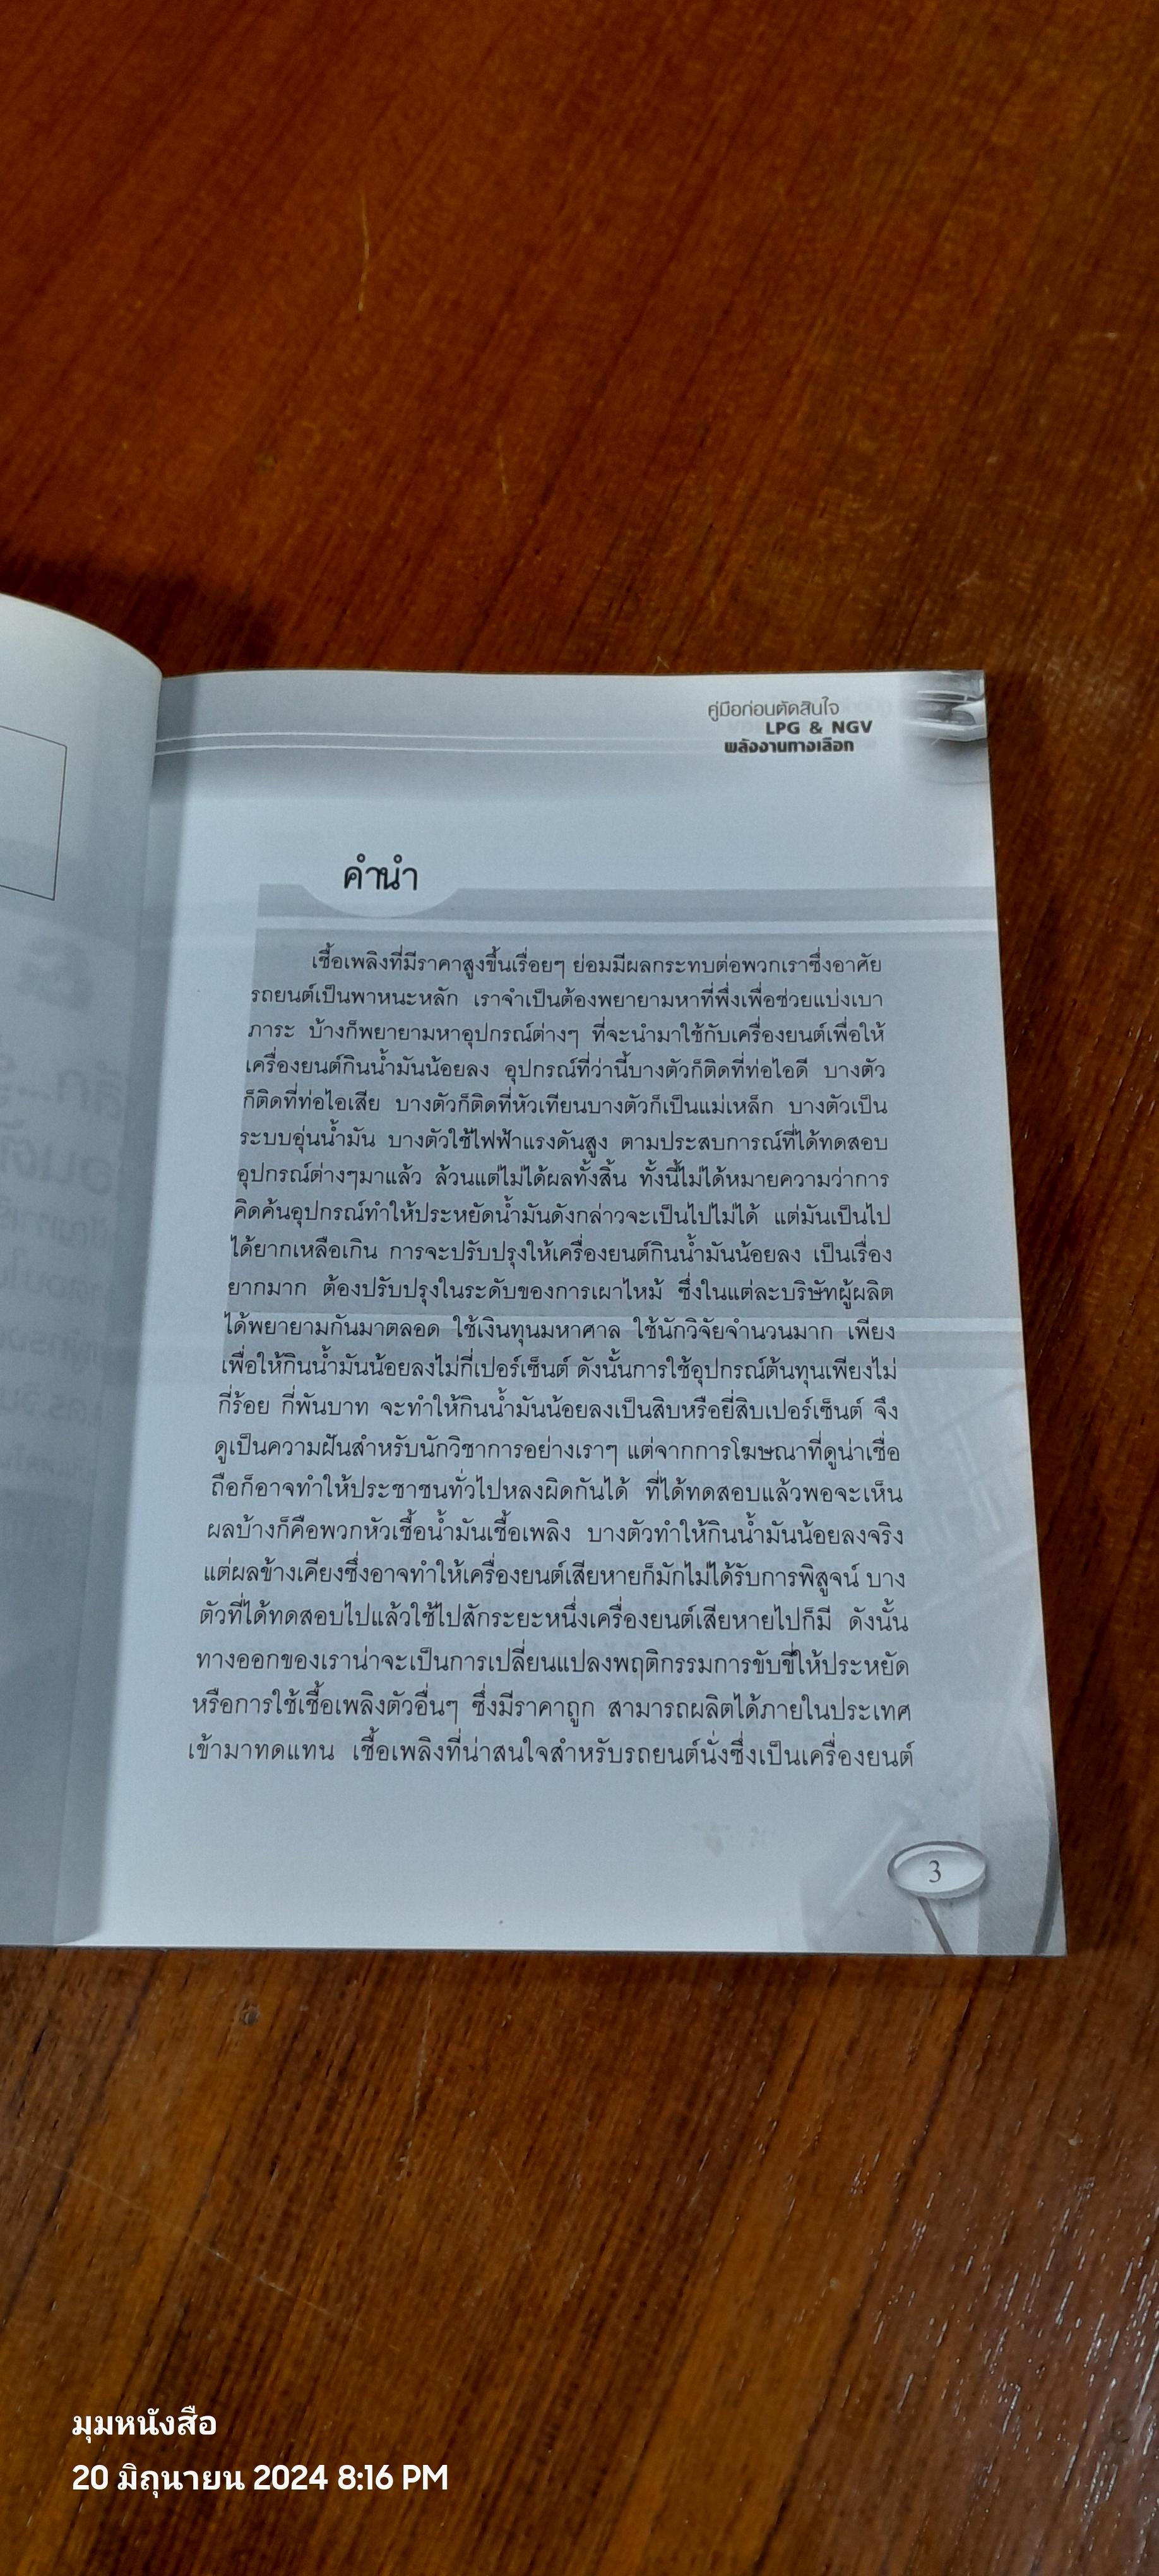 คู่มือก่อนตัดสินใจ
LPG & NGV
พลังงานทางเลือก
คำนำ
เชื้อเพลิงที่มีราคาสูงขึ้นเรื่อยๆ ย่อมมีผลกระทบต่อพวกเราซึ่งอาศัย
รถยนต์เป็นพาหนะหลัก เราจำเป็นต้องพยายามหาที่พึ่งเพื่อช่วยแบ่งเบา
ภาระ บ้างก็พยายามหาอุปกรณ์ต่างๆ ที่จะนำมาใช้กับเครื่องยนต์เพื่อให้
เครื่องยนต์กินน้ำมันน้อยลง อุปกรณ์ที่ว่านี้บางตัวก็ติดที่ท่อไอดี บางตัว
ก็ติดที่ท่อไอเสีย บางตัวก็ติดที่หัวเทียนบางตัวก็เป็นแม่เหล็ก บางตัวเป็น
ระบบอุ่นน้ำมัน บางตัวใช้ไฟฟ้าแรงดันสูง ตามประสบการณ์ที่ได้ทดสอบ
อุปกรณ์ต่างๆมาแล้ว ล้วนแต่ไม่ได้ผลทั้งสิ้น ทั้งนี้ไม่ได้หมายความว่าการ
คิดค้นอุปกรณ์ทำให้ประหยัดน้ำมันดังกล่าวจะเป็นไปไม่ได้ แต่มันเป็นไป
ได้ยากเหลือเกิน การจะปรับปรุงให้เครื่องยนต์กินน้ำมันน้อยลง เป็นเรื่อง
ยากมาก ต้องปรับปรุงในระดับของการเผาไหม้ ซึ่งในแต่ละบริษัทผู้ผลิต
ได้พยายามกันมาตลอด ใช้เงินทุนมหาศาล ใช้นักวิจัยจำนวนมาก เพียง
เพื่อให้กินน้ำมันน้อยลงไม่กี่เปอร์เซ็นต์ ดังนั้นการใช้อุปกรณ์ต้นทุนเพียงไม่
กี่ร้อย กี่พันบาท จะทำให้กินน้ำมันน้อยลงเป็นสิบหรือยี่สิบเปอร์เซ็นต์ จึง
ดูเป็นความฝันสำหรับนักวิชาการอย่างเราๆ แต่จากการโฆษณาที่ดูน่าเชื่อ
ถือก็อาจทำให้ประชาชนทั่วไปหลงผิดกันได้ ที่ได้ทดสอบแล้วพอจะเห็น
ผลบ้างก็คือพวกหัวเชื้อน้ำมันเชื้อเพลิง บางตัวทำให้กินน้ำมันน้อยลงจริง
แต่ผลข้างเคียงซึ่งอาจทำให้เครื่องยนต์เสียหายก็มักไม่ได้รับการพิสูจน์ บาง
ตัวที่ได้ทดสอบไปแล้วใช้ไปสักระยะหนึ่งเครื่องยนต์เสียหายไปก็มี ดังนั้น
ทางออกของเราน่าจะเป็นการเปลี่ยนแปลงพฤติกรรมการขับขี่ให้ประหยัด
หรือการใช้เชื้อเพลิงตัวอื่นๆ ซึ่งมีราคาถูก สามารถผลิตได้ภายในประเทศ
เข้ามาทดแทน เชื้อเพลิงที่น่าสนใจสำหรับรถยนต์นั่งซึ่งเป็นเครื่องยนต์
3
มุมหนังสือ
20 มิถุนายน 2024 8:16 PM